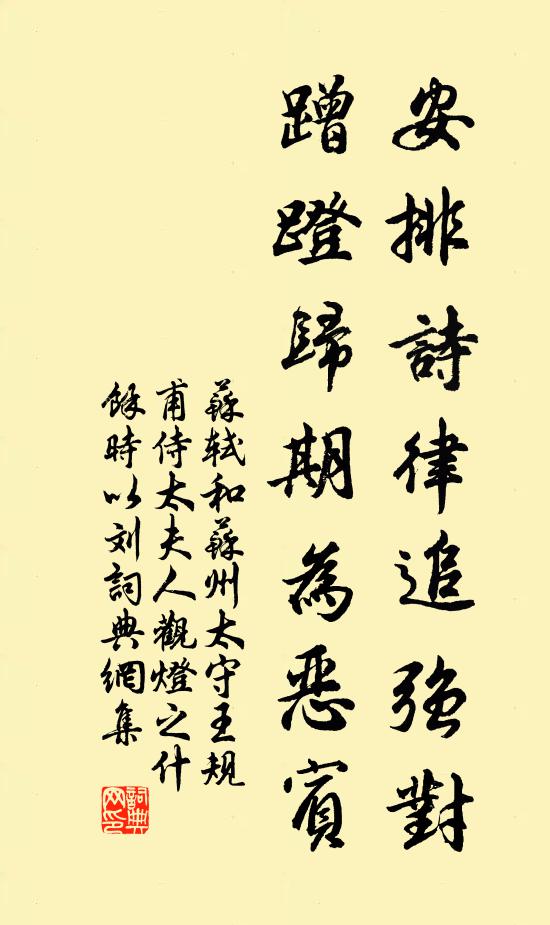 安排詩律追強對
蹭蹬歸期為惡賓
蘇軾和蘇州太守王規
甫侍太夫人觀燈之什
餘時以刘詞典網集
詞典网印